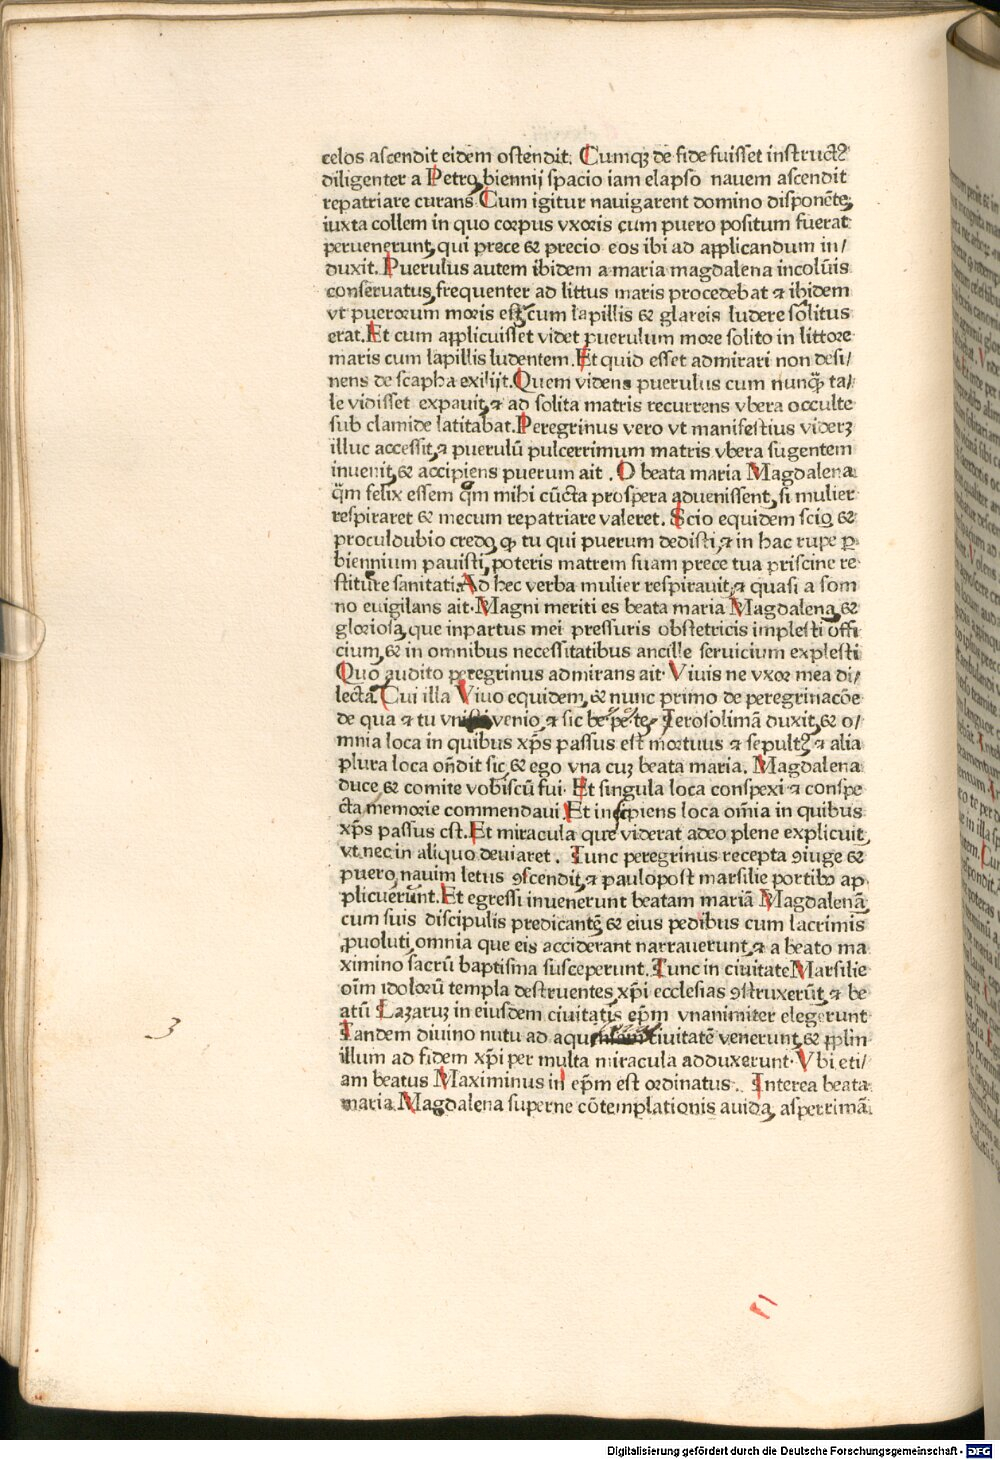 celos ascendit eidem ostendit. Cumqꝫ de fide fuisset instructꝰ
diligenter a Petro, biennij spacio iam elapso nauem ascendit
repatriare curans Cum igitur nauigarent domino disponẽte,
iuxta collem in quo corpus vxoris cum puero positum fuerat
peruenerunt, qui prece & precio eos ibi ad applicandum in/
duxit. Puerulus autem ibidem a maria magdalena incolũis
conseruatus, frequenter ad littus maris procedebat ⁊ ibidem
vt puerorum moris est, cum lapillis & glareis ludere solitus
erat. Et cum applicuisset videt puerulum more solito in littore
maris cum lapillis ludentem. Et quid esset admirari non desi/
nens de scapha exilijt. Quem videns puerulus cum nunq̃ ta/
le vidisset expauit, ⁊ ad solita matris recurrens vbera occulte
sub clamide latitabat. Peregrinus vero vt manifestius viderꝫ
illuc accessit, ⁊ puerulũ pulcerrimum matris vbera sugentem
inuenit, & accipiens puerum ait . O beata maria Magdalena
q̃m felix essem q̃m mihi cũcta prospera aduenissent, si mulier
respiraret & mecum repatriare valeret. Scio equidem scio, &
proculdubio credo, ꝙ tu qui puerum dedisti, ⁊ in hac rupe ꝑ
biennium pauisti, poteris matrem suam prece tua priscine re
stiture sanitati. Ad hec verba mulier respirauit, ⁊ quasi a som
no euigilans ait. Magni meriti es beata maria Magdalena, &
gloriosa, que inpartus mei pressuris obstetricis implesti offi
cium, & in omnibus necessitatibus ancille seruicium explesti
Quo audito peregrinus admirans ait. Viuis ne vxor mea di/
lecta. Cui illa Viuo equidem, & nunc primo de peregrinacõe
de qua ⁊ tu venio, ⁊ sic Ierosolimã duxit, & o/
mnia loca in quibus xp̃s passus est mortuus ⁊ sepultꝰ ⁊ alia
plura loca oñdit sic, & ego vna cuꝫ beata maria. Magdalena
duce & comite vobiscũ fui. Et singula loca conspexi ⁊ conspe
cta memorie commendaui Et loca om̃ia in quibus
xp̃s passus est. Et miracula que viderat adeo plene explicuit,
vt nec in aliquo deuiaret . Tunc peregrinus recepta ꝯiuge &
puero, nauim letus ꝯscendit, ⁊ paulopost marsilie portibꝰ ap
plicuerunt. Et egressi inuenerunt beatam mariã Magdalenã,
cum suis discipulis predicantẽ & eius pedibus cum lacrimis
ꝓuoluti, omnia que eis acciderant narrauerunt, ⁊ a beato ma
ximino sacrũ baptisma susceperunt. Tunc in ciuitate Marsilie
oĩm idolorũ templa destruentes, xp̃i ecclesias ꝯstruxerũt, ⁊ be
atũ Lazaruꝫ in eiusdem ciuitatis ep̃m vnanimiter elegerunt
Tandem diuino nutu ad ciuitatẽ venerunt, & pp̃lm
illum ad fidem xp̃i per multa miracula adduxerunt. Vbi eti/
am beatus Maximinus in ep̃m est ordinatus. Interea beata
maria Magdalena superne cõtemplationis auida, asperrimã
3
Digitalisierung gefördert durch die Deutsche Forschungsgemeinschaft - DFG